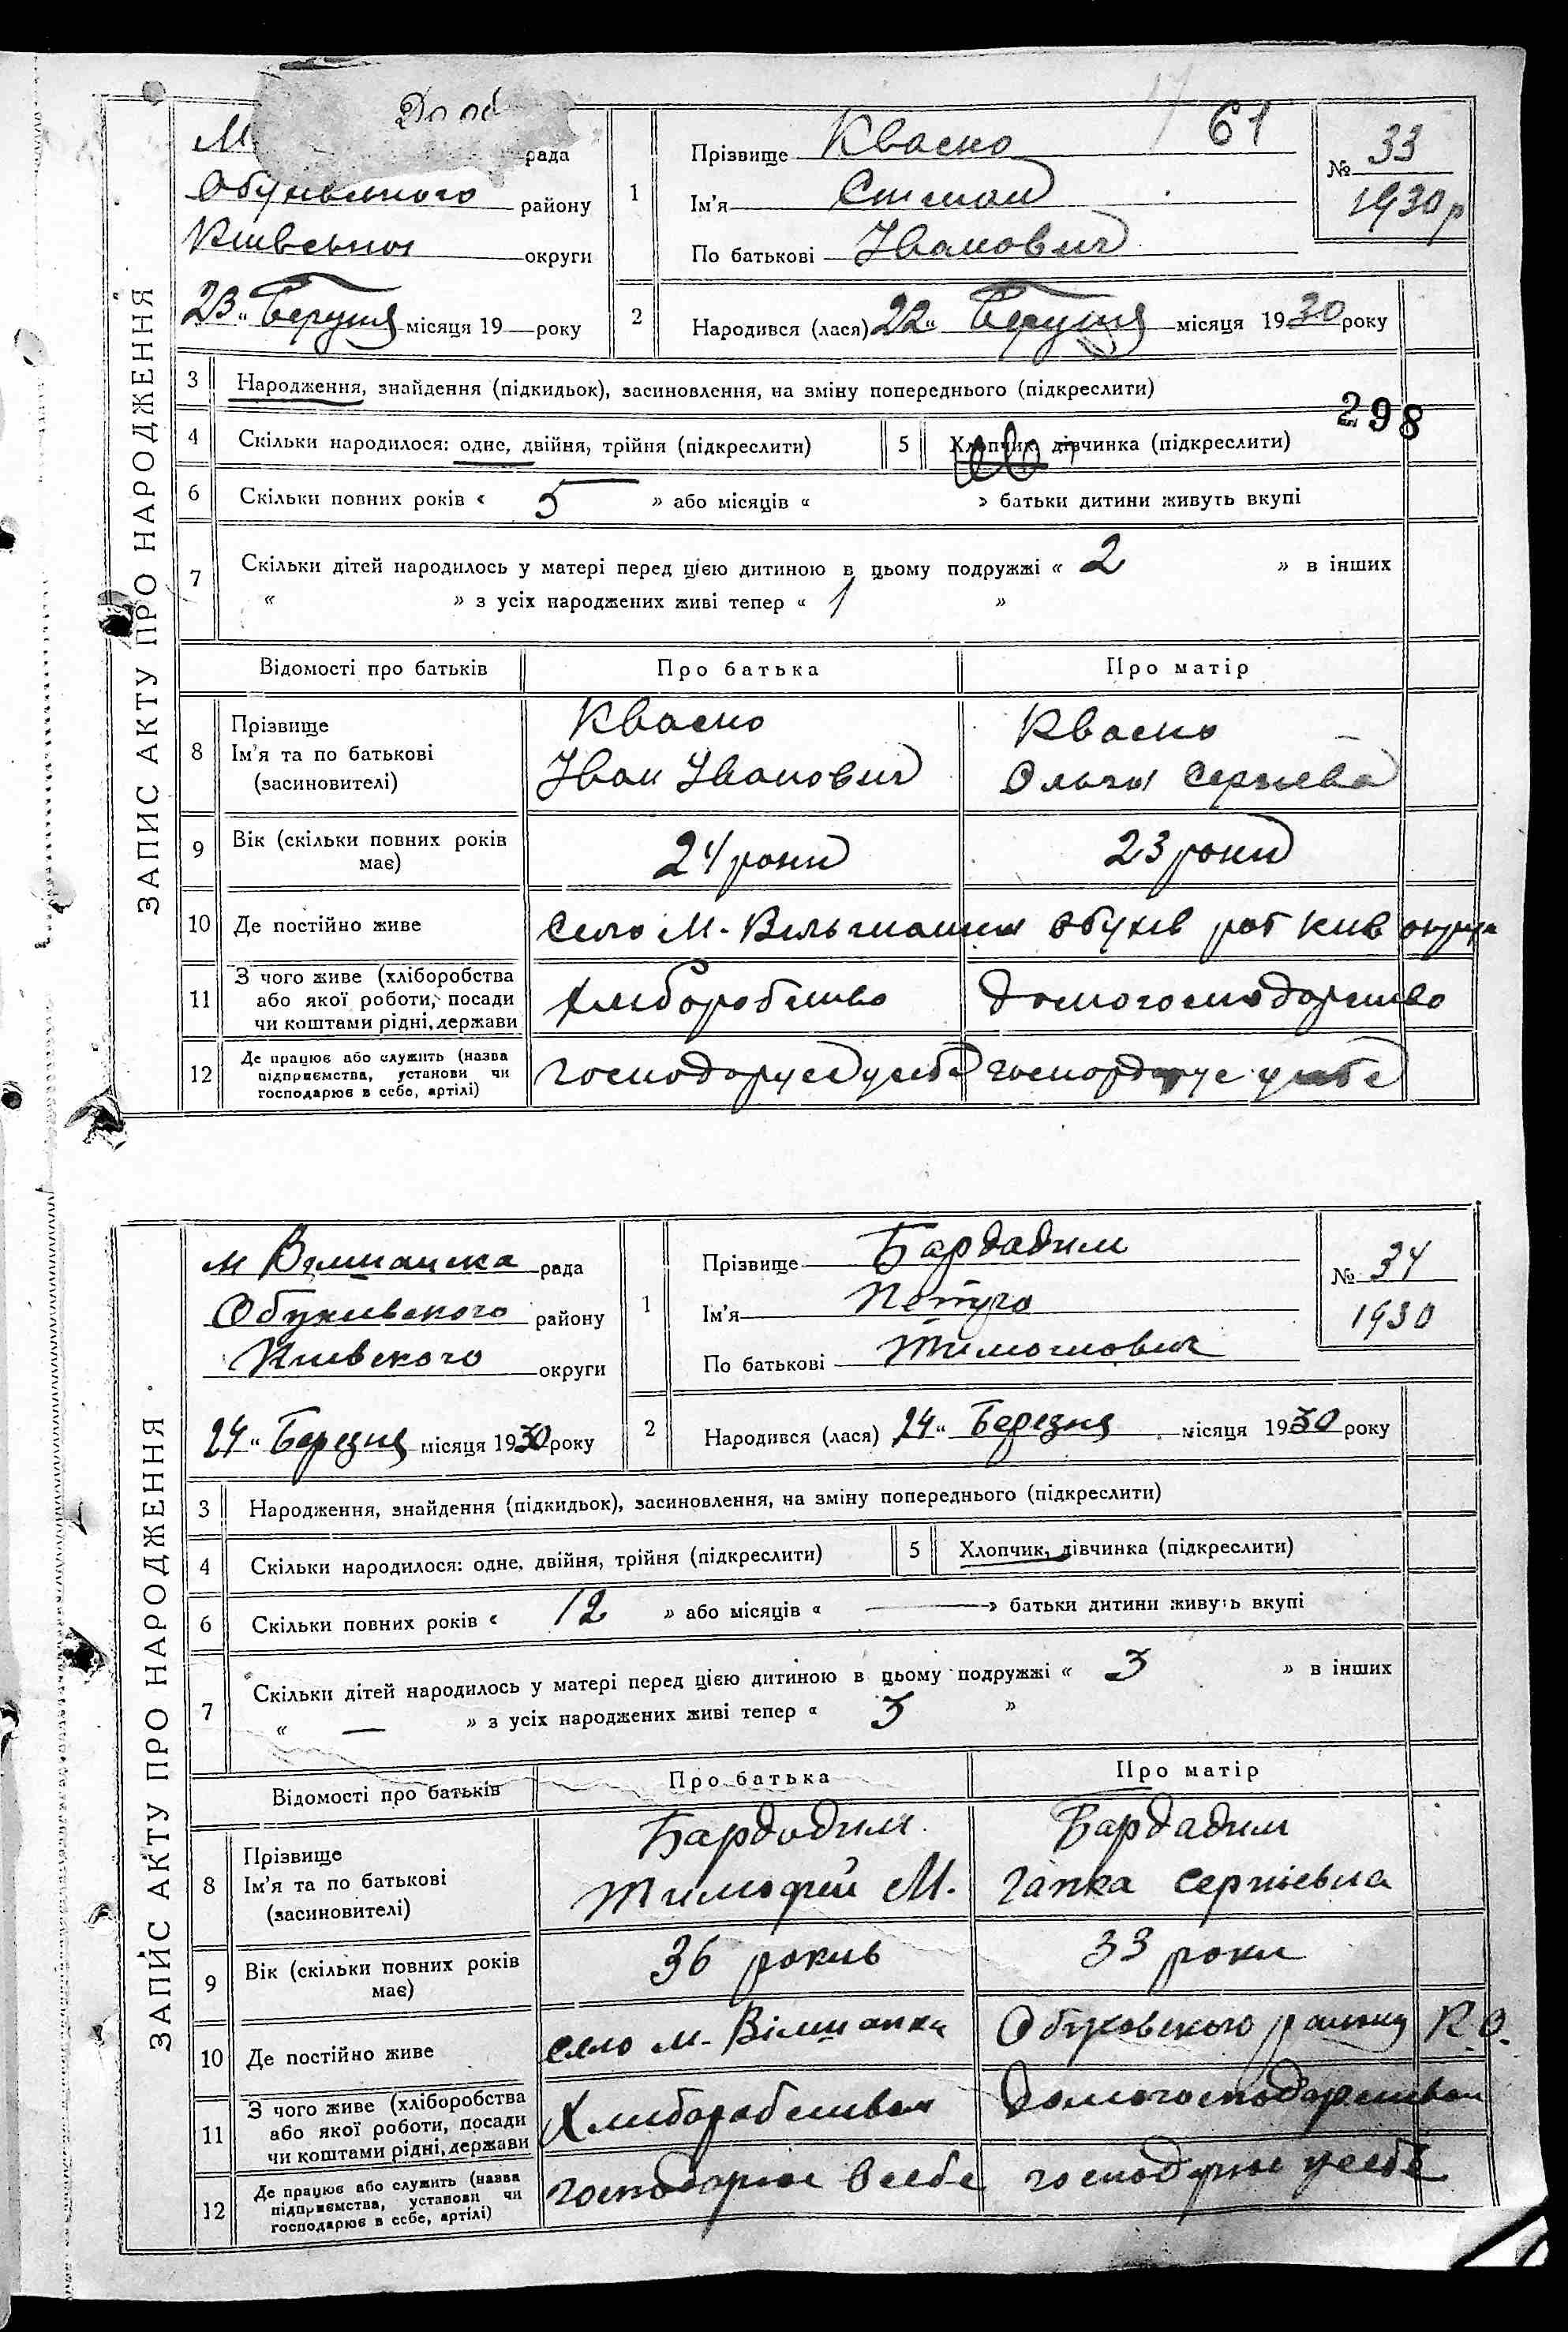 61
М рада
Обухівського району
Київської округи
23 „ Берузня місяця 19 — року
1
Прізвище Кваско
Ім'я Степан
По батькові Іванович
№ 33
1930 р
2
Народився (лася) 22 „ місяця 1930 року
ЗАПИС АКТУ ПРО НАРОДЖЕННЯ
3 Народження, знайдення (підкидьок), засиновлення, на зміну попереднього (підкреслити)
298
4 Скільки народилося: одне, двійня, трійня (підкреслити)
5 Хлопчик, дівчинка (підкреслити)
6 Скільки повних років « 5 » або місяців « » батьки дитини живуть вкупі
7 Скільки дітей народилось у матері перед цією дитиною в цьому подружжі « 2 » в інших
« » з усіх народжених живі тепер « 1 »
Відомості про батьків Про батька Про матір
8 Прізвище Кваско Кваско
Ім'я та по батькові Іван Іванович Ольга Сергіева
(засиновителі)
9 Вік (скільки повних років має) 24 роки 23 роки
10 Де постійно живе Село М-Вільшанка Обухів Київ округи
11 З чого живе (хліборобства
або якої роботи, посади
чи коштами рідні, держави
Хліборобство Домогосподорство
12 Де працює або служить (назва
підприємства, установи чи
господарює в себе, артілі)
господорує у себе господорує у себе
м Вільшанка рада
Обухивского району
Киевского округи
24 „ Березня місяця 1930 року
1
Прізвище Бардадим
Ім'я Петро
По батькові Тимошович
№ 34
1930
2
Народився (лася) 24 „ Березня місяця 1930 року
ЗАПИС АКТУ ПРО НАРОДЖЕННЯ
3 Народження, знайдення (підкидьок), засиновлення, на зміну попереднього (підкреслити)
4 Скільки народилося: одне, двійня, трійня (підкреслити)
5 Хлопчик, дівчинка (підкреслити)
6 Скільки повних років « 12 » або місяців « — » батьки дитини живуть вкупі
7 Скільки дітей народилось у матері перед цією дитиною в цьому подружжі « 3 » в інших
« — » з усіх народжених живі тепер « 3 »
Відомості про батьків Про батька Про матір
8 Прізвище Бардодим Бардадим
Ім'я та по батькові Тимофій М. Гапка Сергіевна
(засиновителі)
9 Вік (скільки повних років має) 36 рокив 33 роки
10 Де постійно живе село м-Вільшанка Обуховського району К.О.
11 З чого живе (хліборобства
або якої роботи, посади
чи коштами рідні, держави
Хлиборобством Домогосподарством
12 Де працює або служить (назва
підприємства, установи чи
господарює в себе, артілі)
господарює в себе господарює у себе